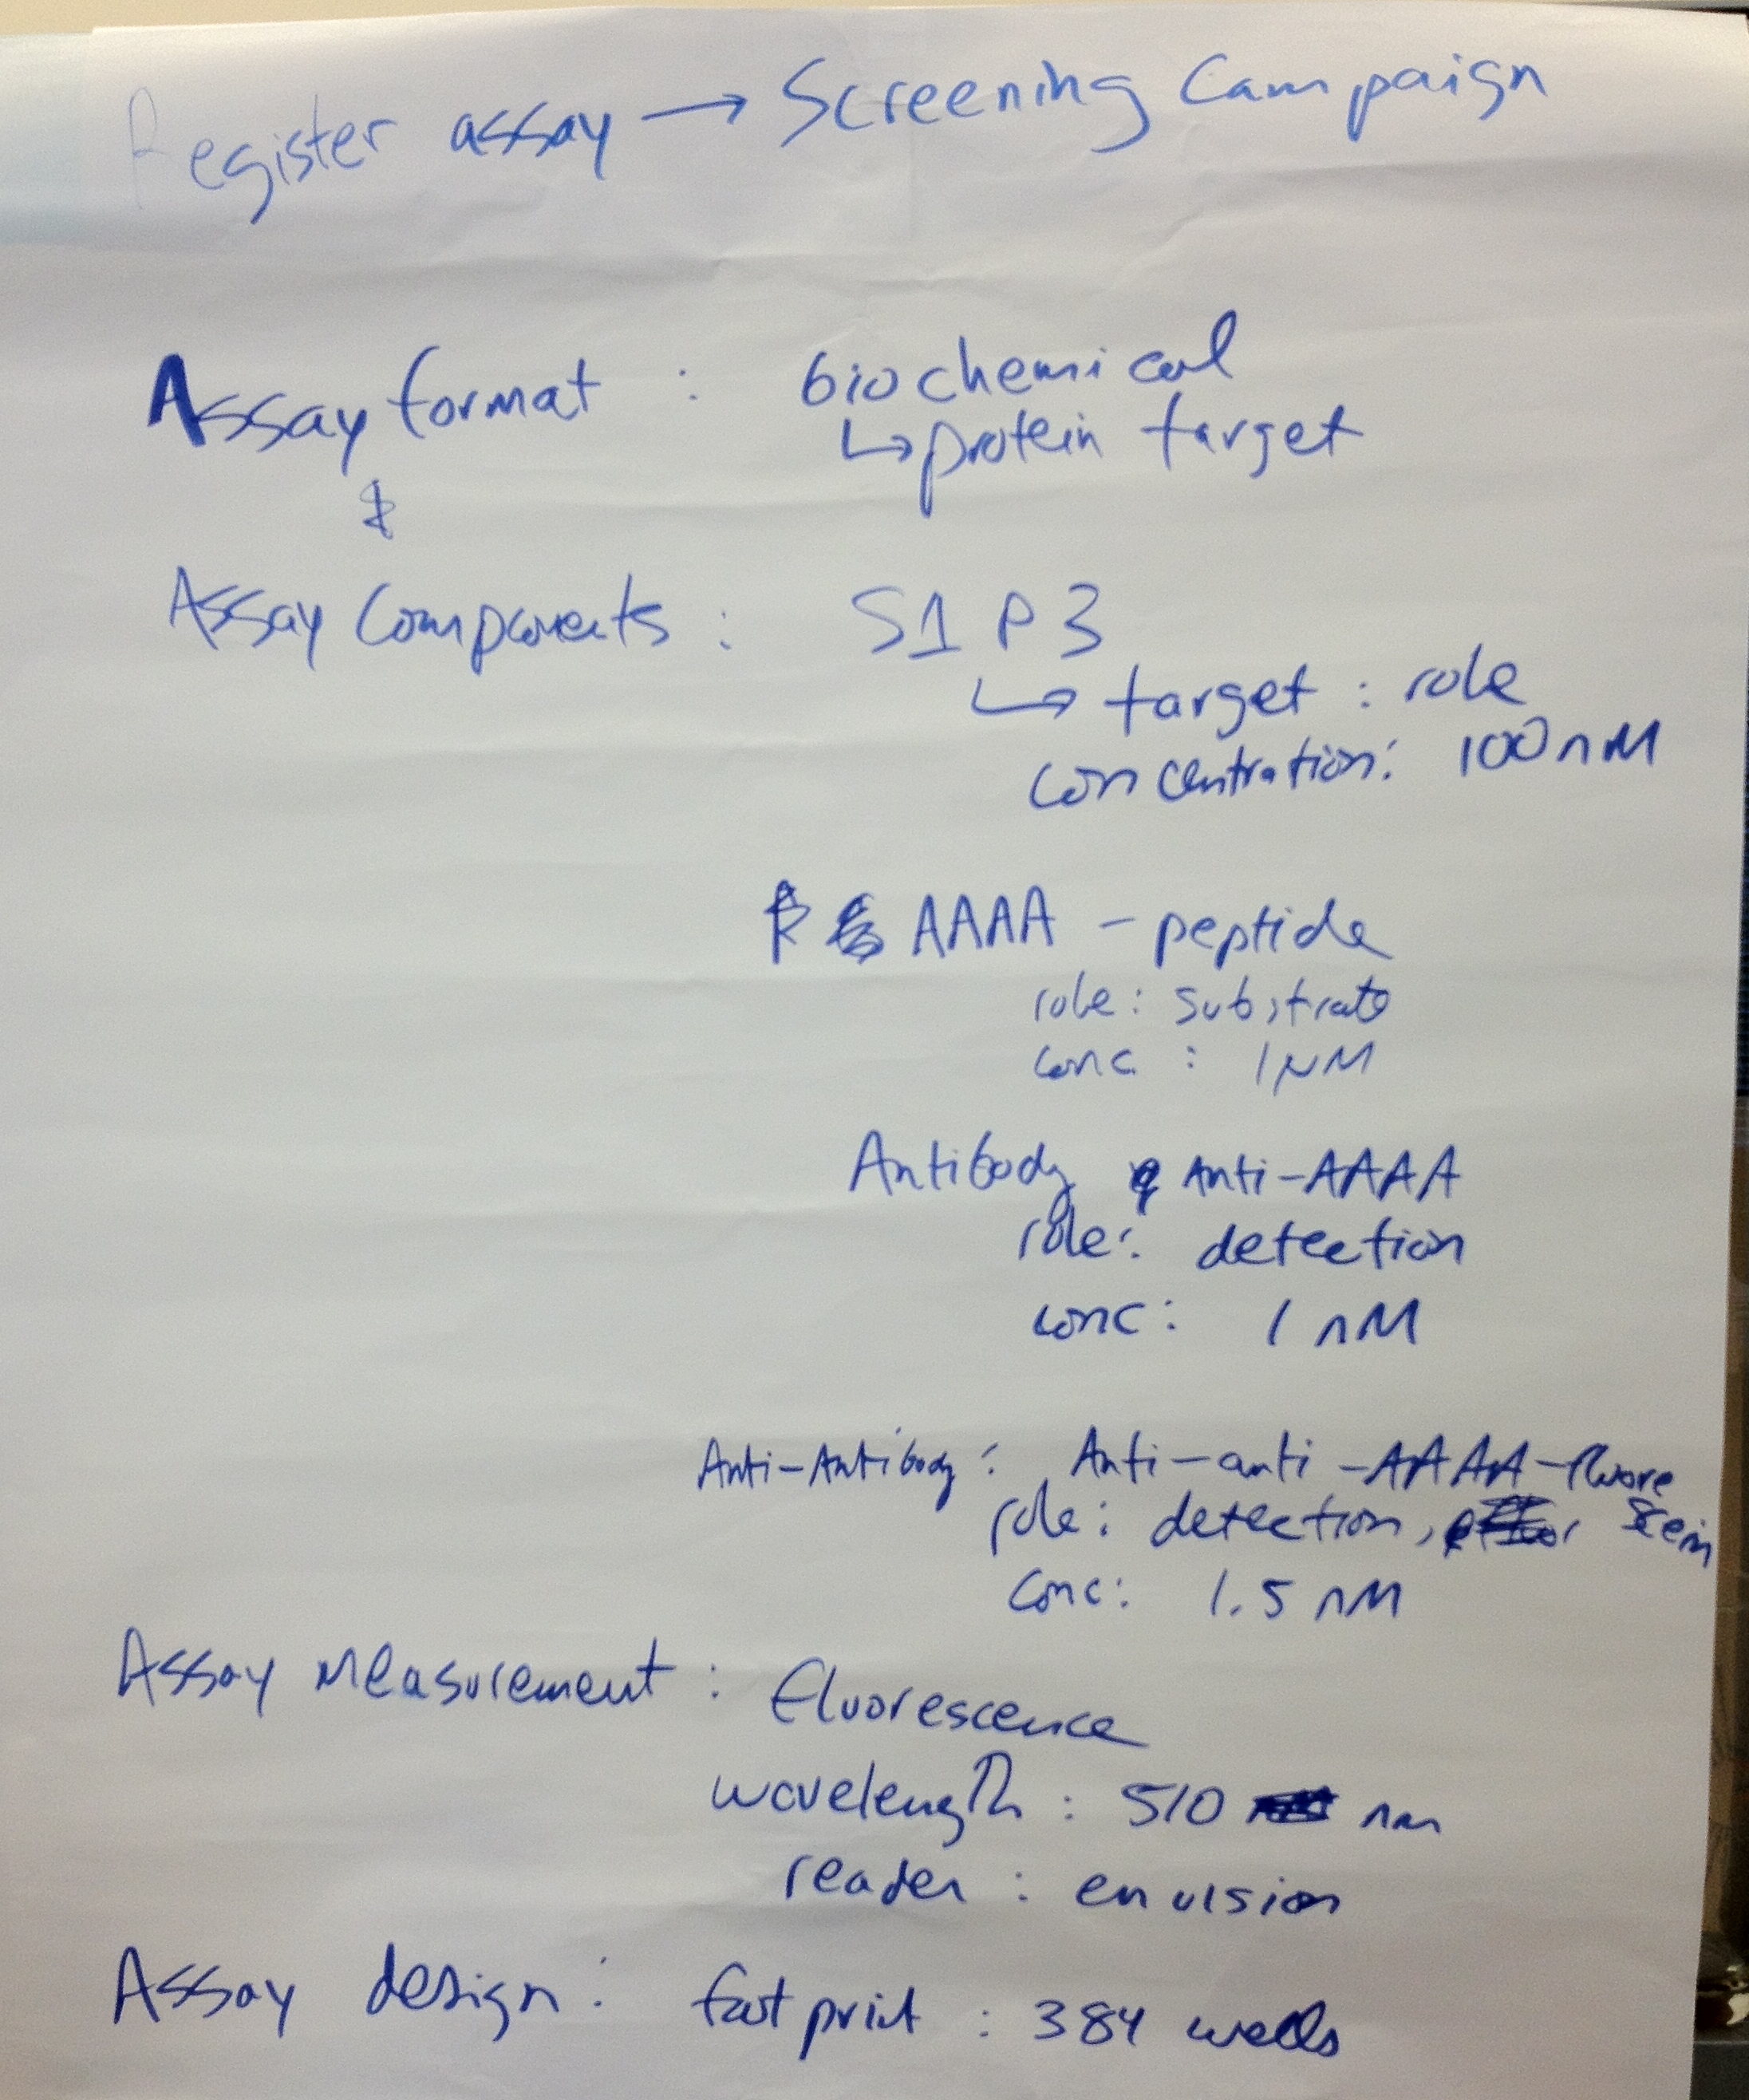 Register assay → Screening Campaign
Assay format : biochemical
↳ protein target
Assay Components : S1P3
↳ target : role
concentration: 100 nM
AAAA - peptide
role: substrate
conc : 1 μM
Antibody Anti-AAAA
role: detection
conc: 1 nM
Anti-Antibody: Anti-anti-AAAA-fluore
role: detection, scein
conc: 1.5 nM
Assay Measurement : fluorescence
wavelength : 510 nm
reader : envision
Assay design: footprint : 384 wells